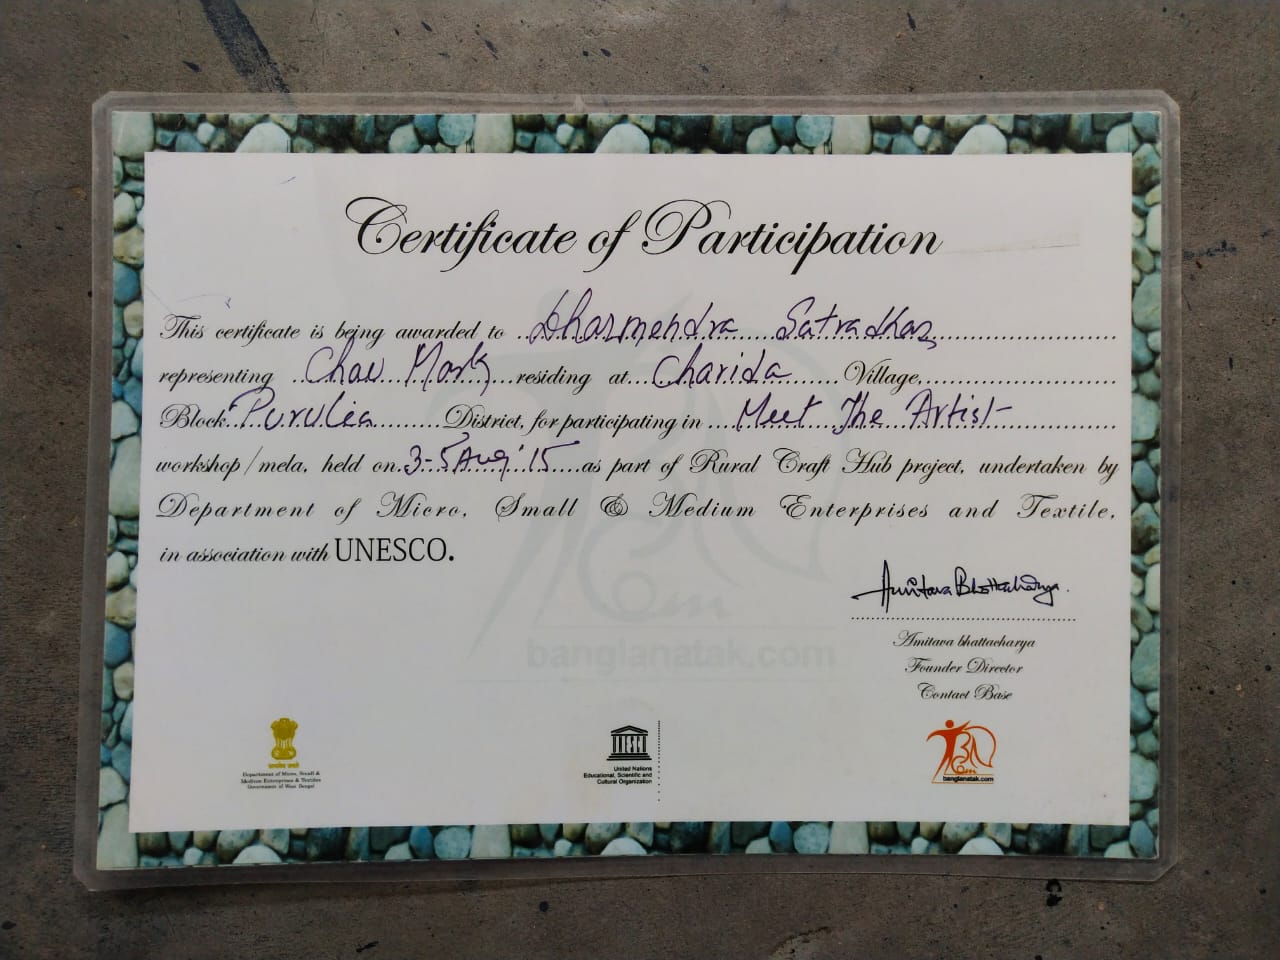 Certificate of Participation
This certificate is being awarded to Dharmendra Sutradhar
representing Chau Mask residing at Charida Village
Block Purulia District, for participating in Meet The Artist
workshop/mela, held on 3-5 Aug' 15 as part of Rural Craft Hub project, undertaken by
Department of Micro, Small & Medium Enterprises and Textile,
in association with UNESCO.
Amitava Bhattacharya.
Amitava bhattacharya
Founder Director
Contact Base
banglanatak.com
Department of Micro, Small &
Medium Enterprises & Textiles
Government of West Bengal
UNESCO
United Nations
Educational, Scientific and
Cultural Organization
banglanatak.com